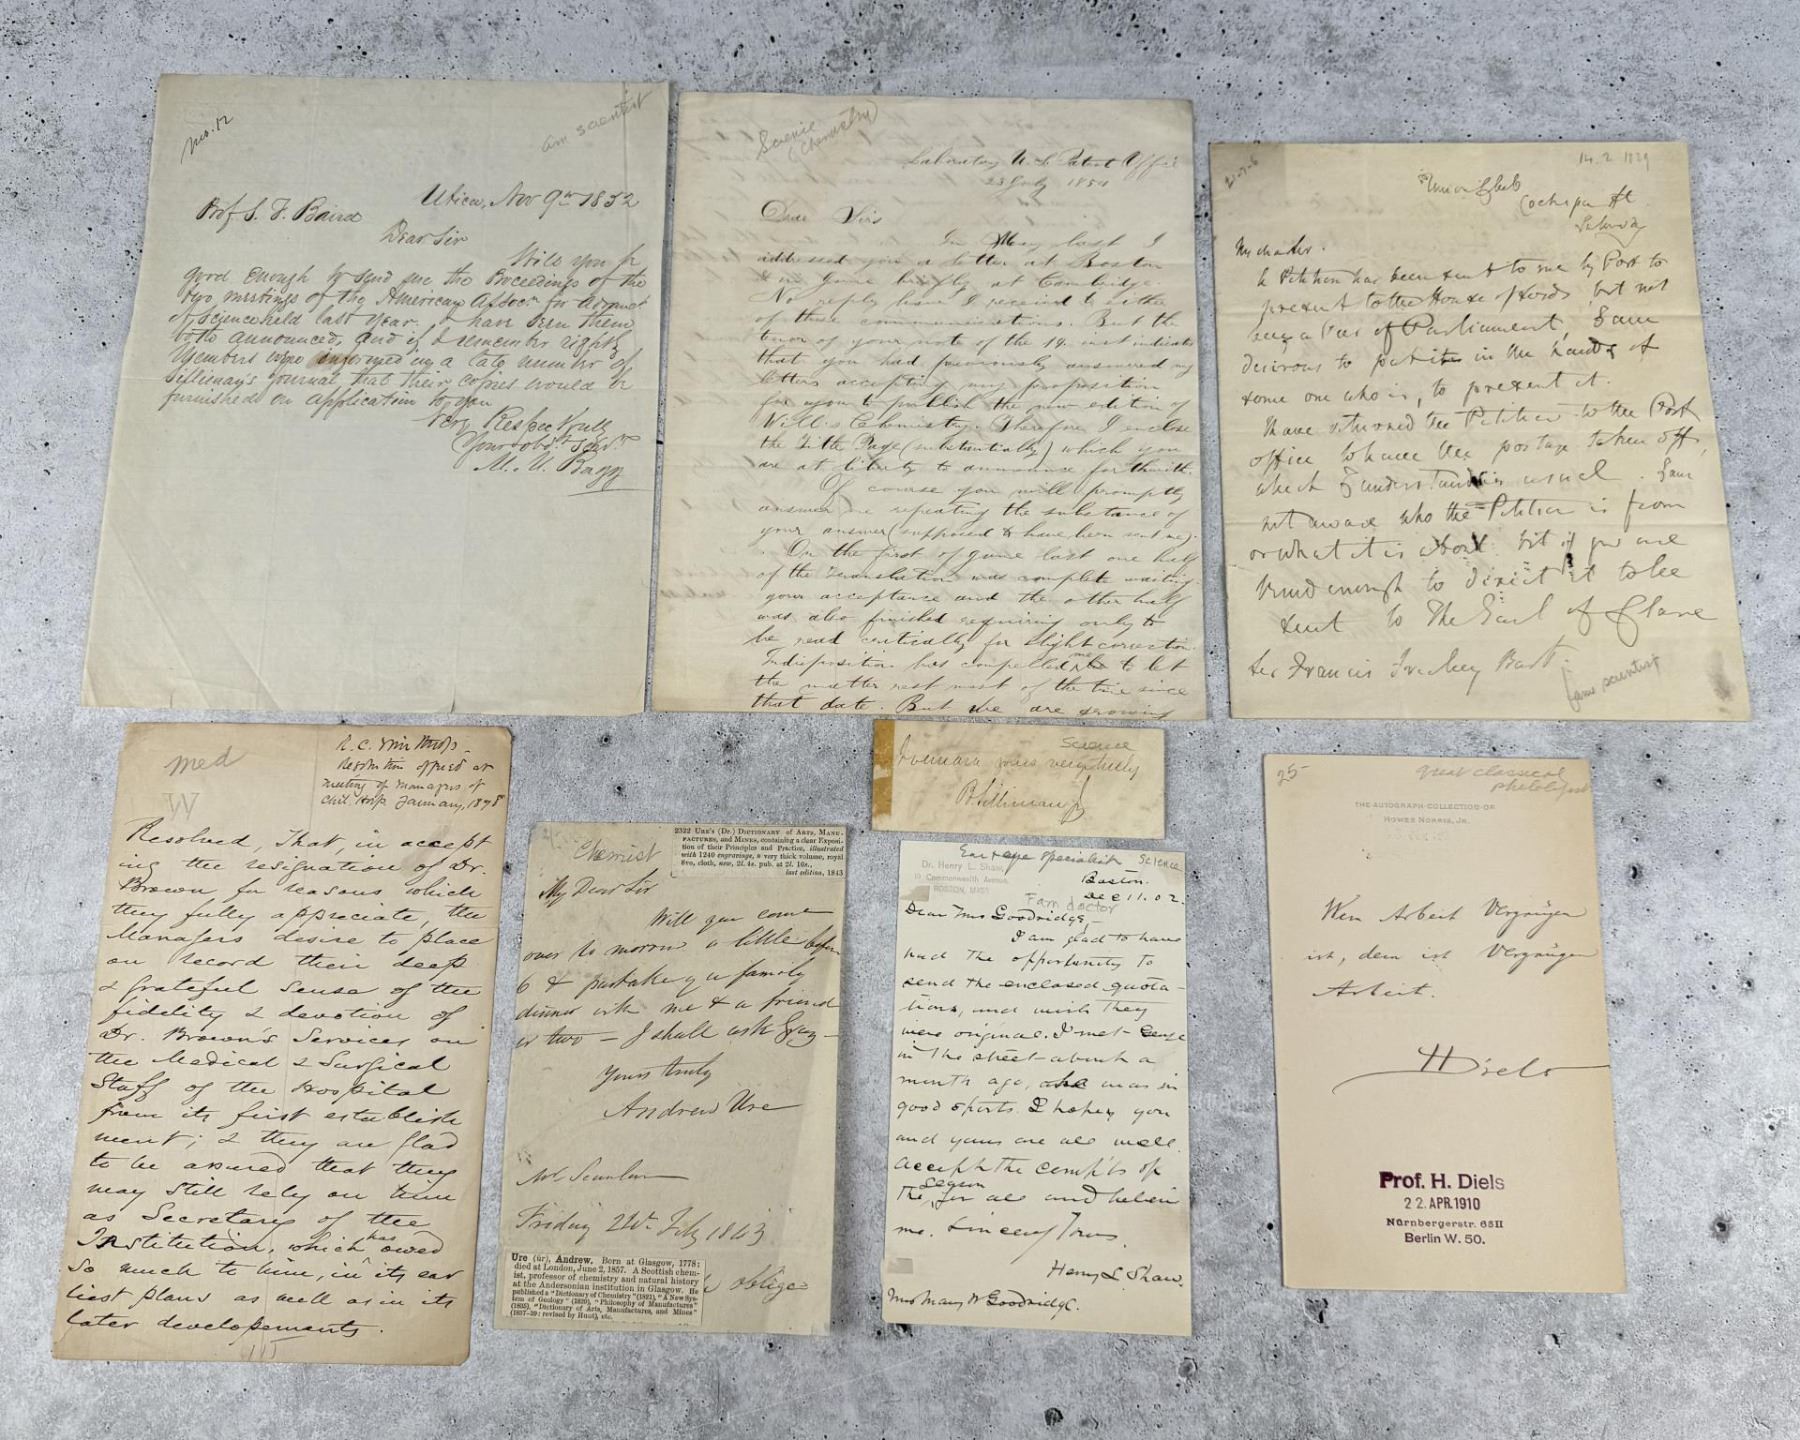 No. 12
am scientist
Utica, Nov 9th 1852
Prof S. F. Baird
Dear Sir
Will you be
good enough to send me the Proceedings of the
two meetings of the American Assocn for Advmct
of Science held last year. I have seen them
both announced, and if I remember rightly
Members were informed in a late number of
Silliman's Journal that their copies would be
furnished on application to you
Very Respectfully
Your obt. Servt
M. M. Bagg
Science
(Chemistry)
Laboratory U. S. Patent Office
23 July 1854
Dear Sirs
In May last I
addressed you a letter at Boston
& in June briefly at Cambridge.
No reply have I received to either
of these communications. But the
tenor of your note of the 19. inst indicates
that you had previously answered my
letters accepting my proposition
for you to publish the new edition of
Will's Chemistry. Therefore I enclose
the Title Page (substantially) which you
are at liberty to announce forthwith.
Of course you will promptly
answer me repeating the substance of
your answer (supposed to have been sent me).
On the first of June last one half
of the translation was complete waiting
your acceptance and the other half
was also finished requiring only to
be read critically for slight correction.
Indisposition has compelled me to let
the matter rest most of the time since
that date. But we are growing
14. 2 1839
Union Club
St.
Saturday
My dear Sir.
A Petition has been sent to me by Post to
present to the House of Lords, but not
being a Peer of Parliament, I am
desirous to put it in the hands of
some one who is, to present it.
I have returned the Petition to the Post
office to have the postage taken off,
which I understand is usual. I am
not aware who the Petition is from
or what it is about but if you are
kind enough to direct it to be
sent to The Earl of Clare
Sir Francis Freeling Bart.
(am scientist
med
W
Resolution offered at
meeting of Managers of
Chil. Hosp January, 1878
Resolved, That, in accept
ing the resignation of Dr.
Brown for reasons which
they fully appreciate, the
Managers desire to place
on record their deep
& grateful sense of the
fidelity & devotion of
Dr. Brown's services on
the Medical & Surgical
Staff of the Hospital
from its first establish
ment; & they are glad
to be assured that they
may still rely on him
as Secretary of the
Institution, which has owed
so much to him, in its ear
liest plans as well as in its
later developements.
115
Science
I remain yours very truly
B Silliman Jr
Chemist
2322 Ure's (Dr.) Dictionary of Arts, Manu-
factures, and Mines, containing a clear Exposi-
tion of their Principles and Practice, illustrated
with 1240 engravings, a very thick volume, royal
8vo, cloth, new, 2l. 4s. pub. at 2l. 10s..
last edition, 1843
My Dear Sir
Will you come
over to morrow a little before
6 & partake of a family
dinner with me & a friend
or two — I shall ask Gray —
Yours truly
Andrew Ure
Mr Scanlan
Friday 21st July 1843
oblige
Ure (ūr), Andrew. Born at Glasgow, 1778:
died at London, June 2, 1857. A Scottish chem-
ist, professor of chemistry and natural history
at the Andersonian institution in Glasgow. He
published a "Dictionary of Chemistry" (1821), "A New Sys-
tem of Geology" (1829), "Philosophy of Manufactures"
(1835), "Dictionary of Arts, Manufactures, and Mines"
(1837-39: revised by Hunt), etc.
Ear & eye specialist Science
Dr. Henry L. Shaw,
Commonwealth Avenue,
BOSTON, MASS.
Boston.
Dec 11. 02.
Fam doctor
Dear Mrs Goodridge,
I am glad to have
had the opportunity to
send the enclosed quota-
tions, and wish they
were original. I met
in the street about a
month ago, she was in
good spirits. I hope you
and yours are all well.
Accept the compts of
the season for all and believe
me. Sincerely Yours.
Henry L Shaw.
Mrs Mary W Goodridge.
25-
great classical
philologist
THE AUTOGRAPH COLLECTION OF
HOWES NORRIS, JR.
Wem Arbeit Vergnügen
ist, dem ist Vergnügen
Arbeit.
HDiels
Prof. H. Diels
22. APR. 1910
Nürnbergerstr. 65II
Berlin W. 50.